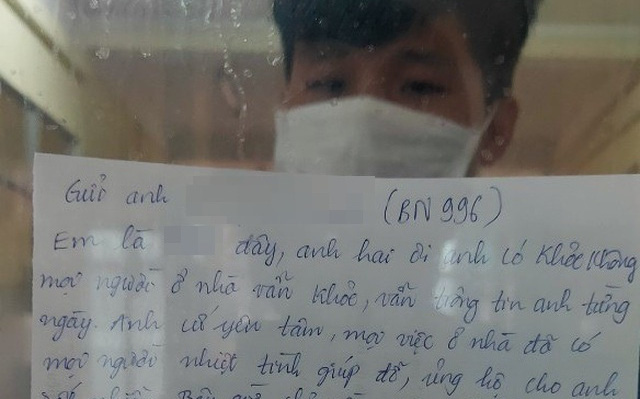 Gửi anh (BN 996)
Em là đây, anh hai ơi anh có khỏe không
mọi người ở nhà vẫn khỏe, vẫn trông tin anh từng
ngày. Anh cứ yên tâm, mọi việc ở nhà đã có
mọi người nhiệt tình giúp đỡ, ủng hộ cho anh